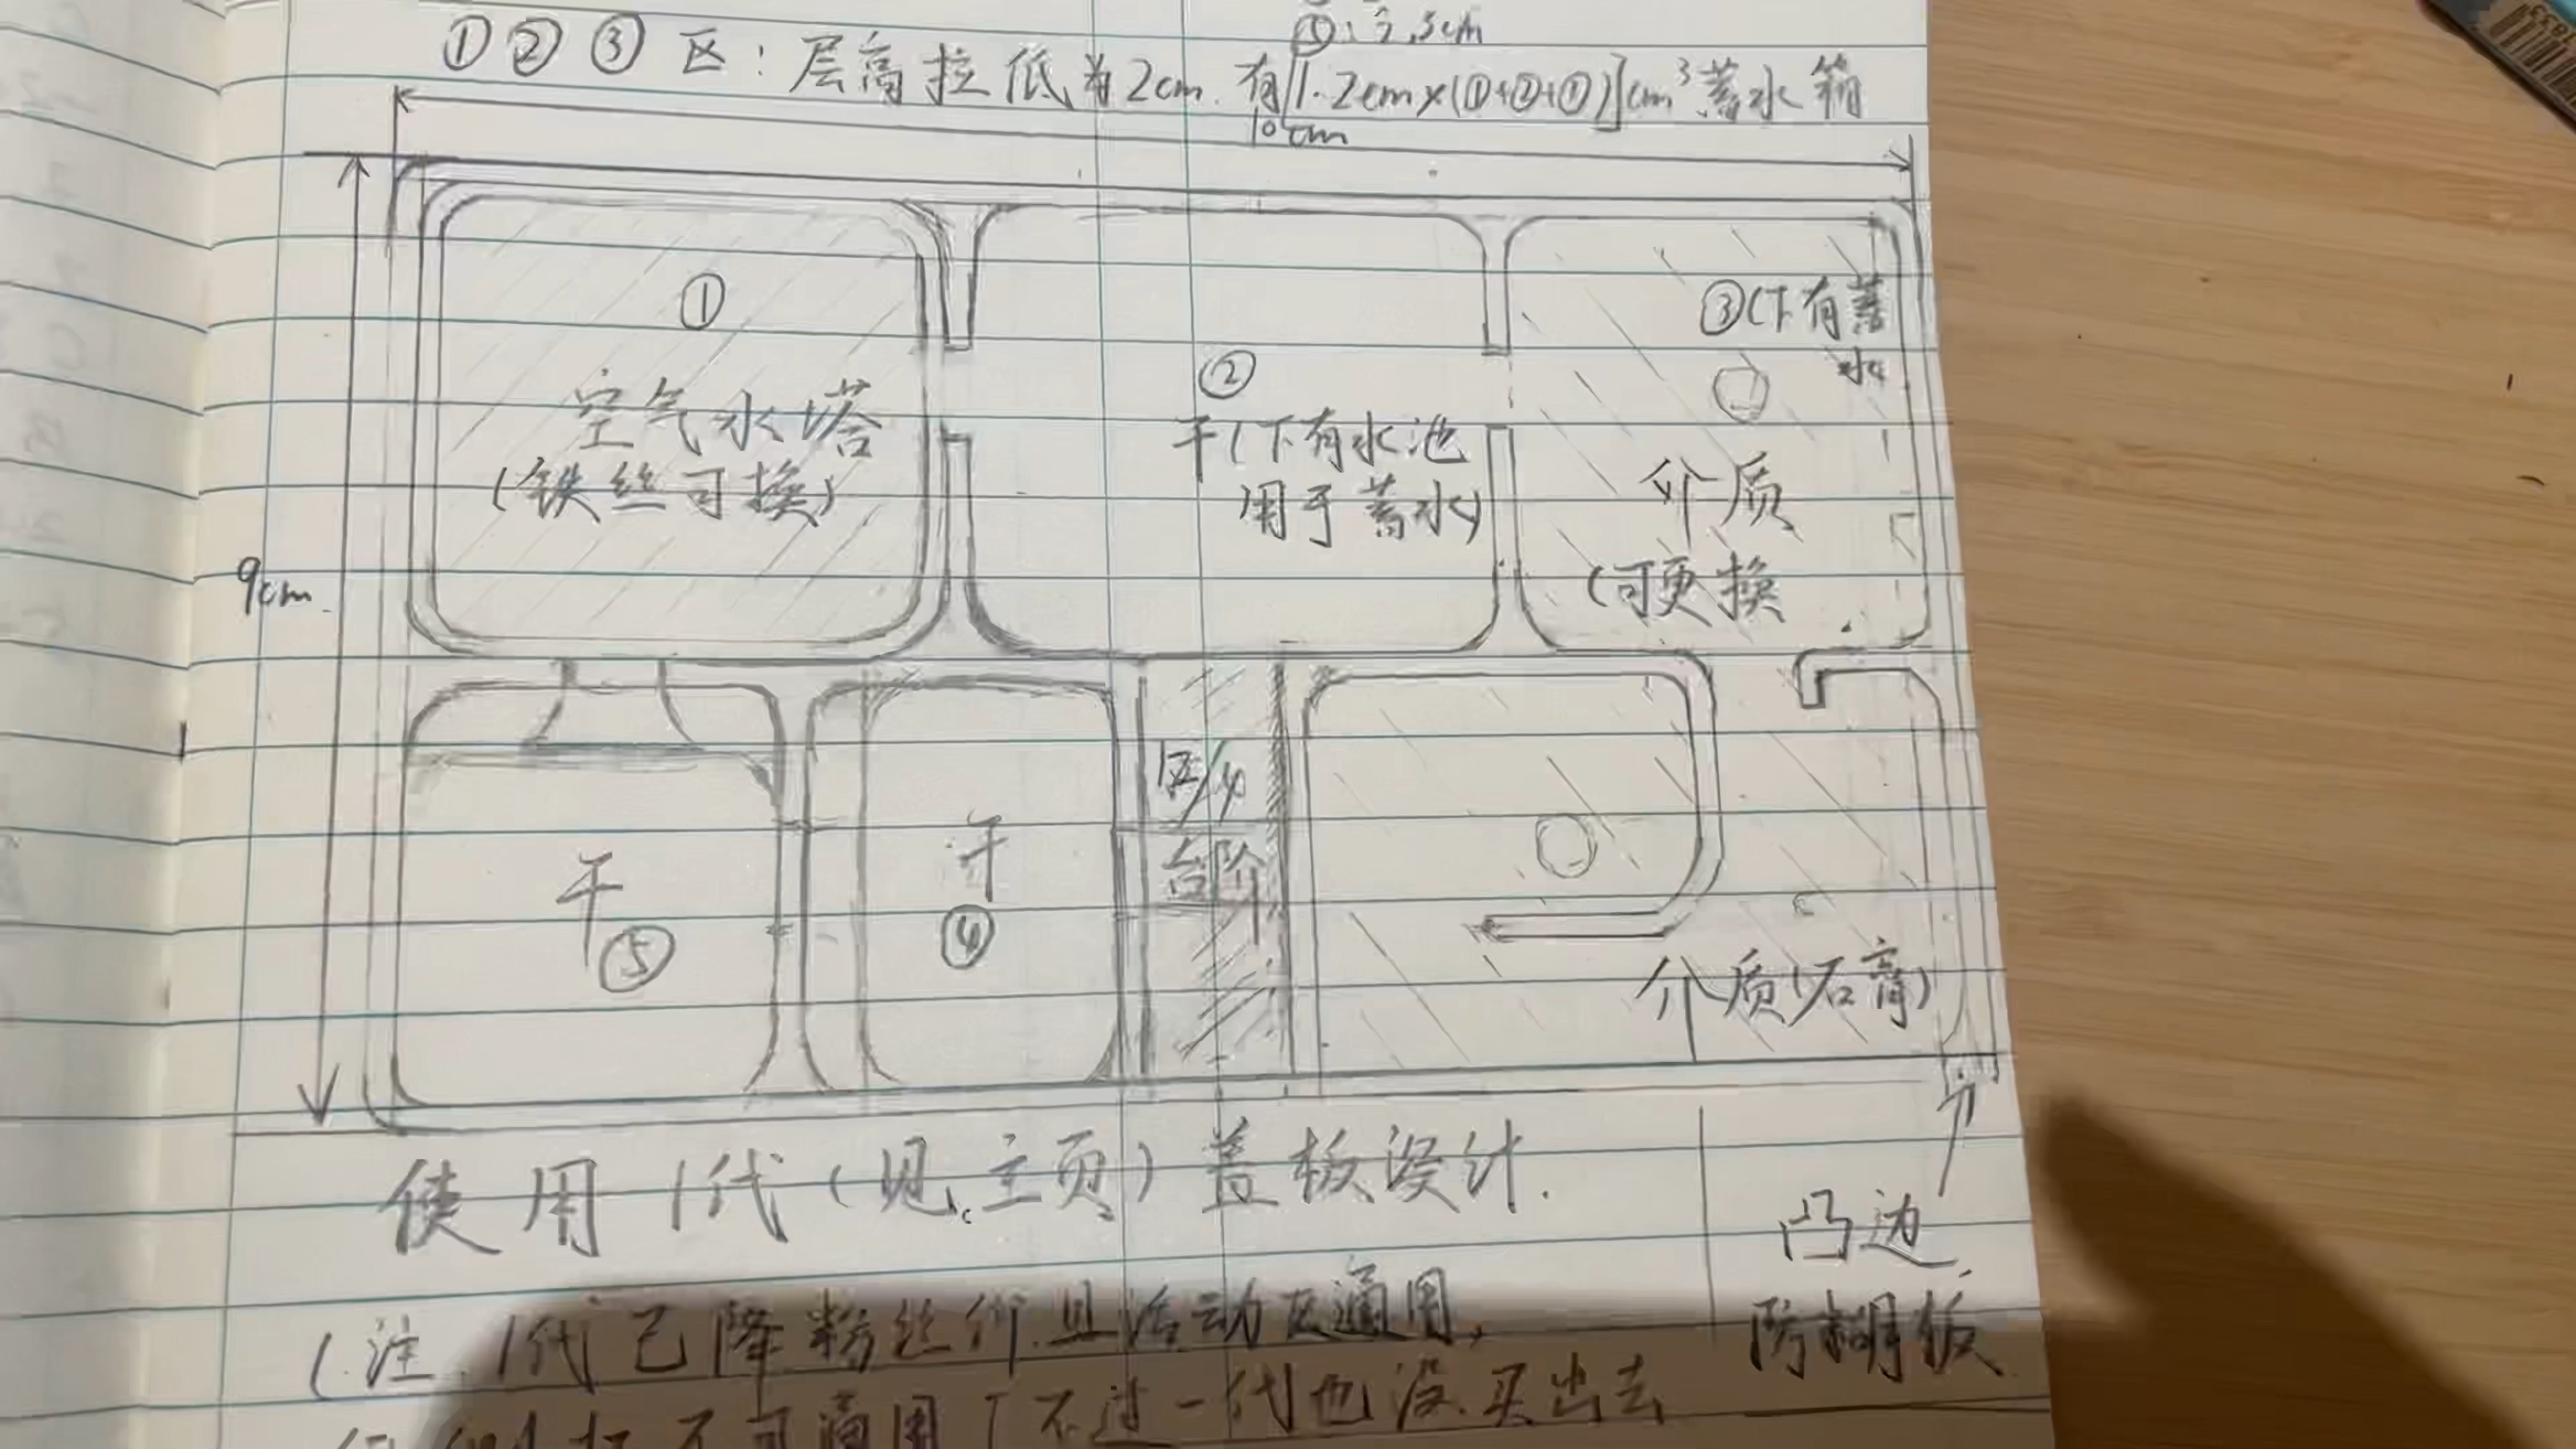 ⑤: 2.5cm
①②③ 区: 层高拉低为2cm. 有[1.2cm×(①+②+①)]cm³蓄水箱
10cm
①
空气水塔
(铁丝可换)
②
干(下有水池
用于蓄水)
③(下有蓄
水
介质
(可更换
9cm
台阶
干
⑤
干
④
介质(石膏)
使用1代(见主页)盖板设计.
凸边
防糊板
(注.1代已降粉丝价.且活动区通用,
不可通用 不过一代也没买出去